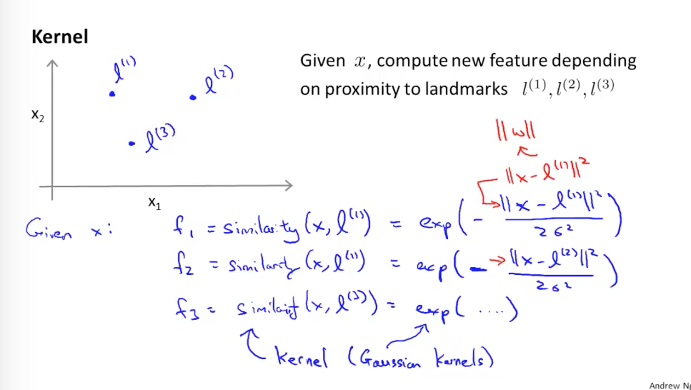 Kernel
Given x, compute new feature depending
on proximity to landmarks l^(1), l^(2), l^(3)
l^(1)
l^(2)
l^(3)
x₂
x₁
||w||
||x - l^(1)||²
Given x:
f₁ = similarity(x, l^(1)) = exp(- ||x - l^(1)||² / 2σ²)
f₂ = similarity(x, l^(1)) = exp(- ||x - l^(2)||² / 2σ²)
f₃ = similarit(x, l^(3)) = exp(....)
kernel (Gaussian kernels)
Andrew N